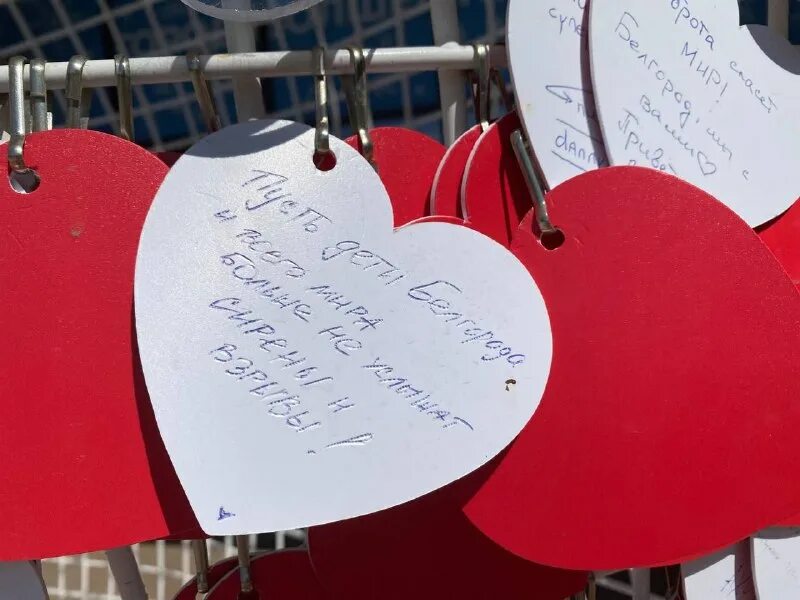 Пусть дети Белгорода
и всего мира
больше не услышат
сирены и
взрывы!
доброта спасет
МИР!
Белгород, мы с
вами
Привет